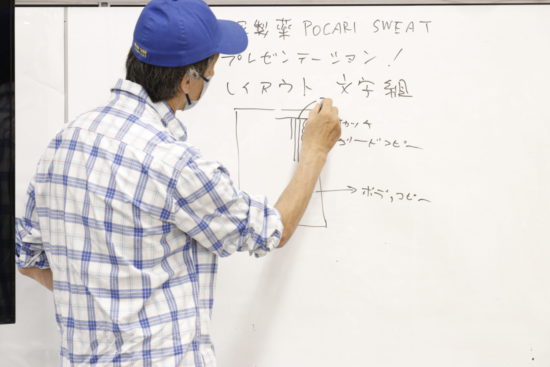 製薬 POCARI SWEAT
プレゼンテーション!
レイアウト 文字組
リードコピー
ボディコピー